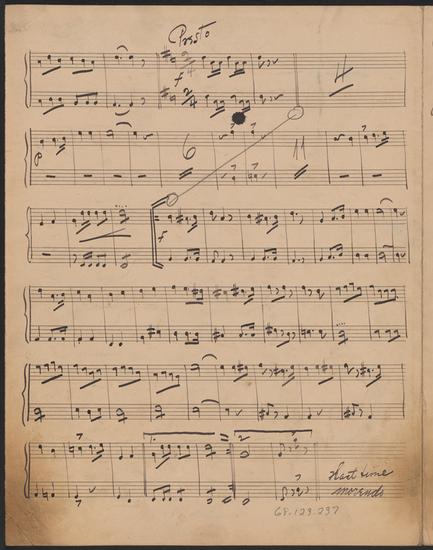 Presto
f
2/4
4
P
6
11
f
1.
2
Last time
morendo
68.123.237